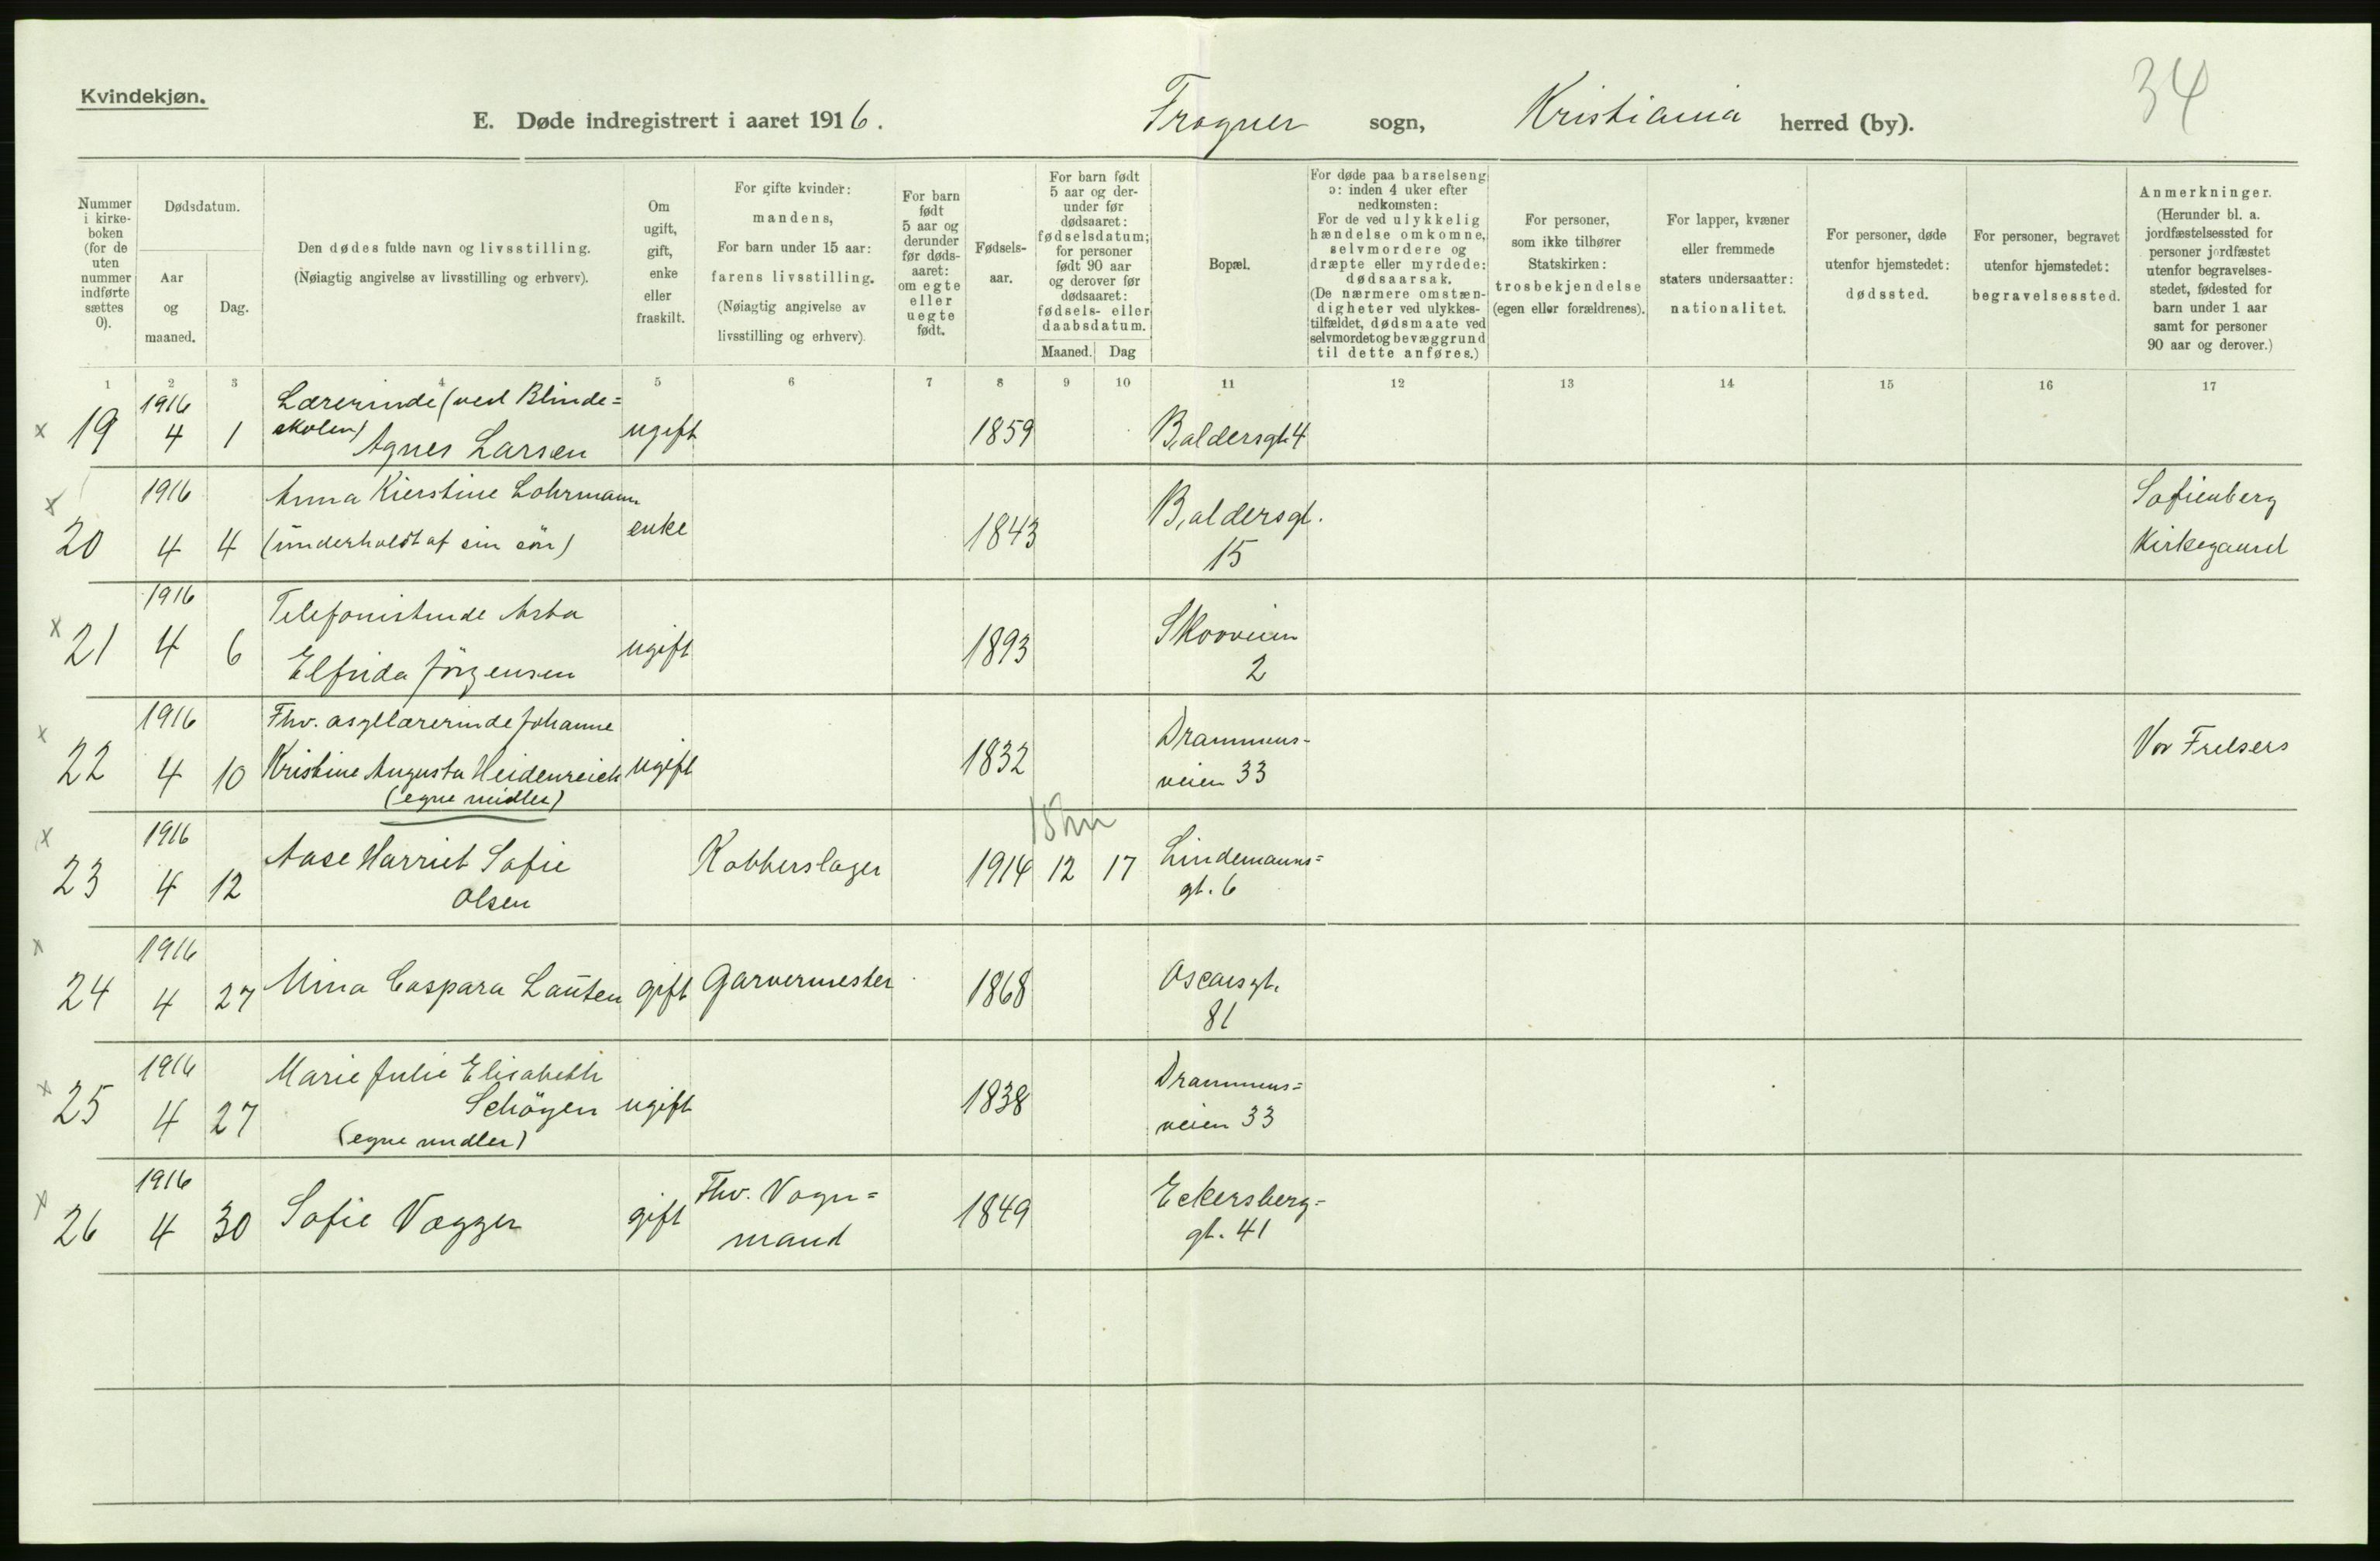 Kvindekjøn.
34
E. Døde indregistrert i aaret 1916. Frogner sogn, Kristiania herred (by).
Nummer
i kirke-
boken
(for de
uten
nummer
indførte
sættes
0).
Dødsdatum.
Aar
og
maaned.
Dag.
Den dødes fulde navn og livsstilling.
(Nøiagtig angivelse av livsstilling og erhverv).
Om
ugift,
gift,
enke
eller
fraskilt.
For gifte kvinder:
mandens,
For barn under 15 aar:
farens livsstilling.
(Nøiagtig angivelse av
livsstilling og erhverv).
For barn
født
5 aar og
derunder
før døds-
aaret:
om egte
eller
uegte
født.
Fødsels-
aar.
For barn født
5 aar og der-
under før
dødsaaret:
fødselsdatum;
for personer
født 90 aar
og derover før
dødsaaret:
fødsels- eller
daabsdatum.
Maaned. Dag
Bopæl.
For døde paa barselseng
ɔ: inden 4 uker efter
nedkomsten:
For de ved ulykkelig
hændelse omkomne,
selvmordere og
dræpte eller myrdede:
dødsaarsak.
(De nærmere omstæn-
digheter ved ulykkes-
tilfældet, dødsmaate ved
selvmordet og bevæggrund
til dette anføres.)
For personer,
som ikke tilhører
Statskirken:
trosbekjendelse
(egen eller forældrenes).
For lapper, kvæner
eller fremmede
staters undersaatter:
nationalitet.
For personer, døde
utenfor hjemstedet:
dødssted.
For personer, begravet
utenfor hjemstedet:
begravelsessted.
Anmerkninger.
(Herunder bl. a.
jordfæstelsessted for
personer jordfæstet
utenfor begravelses-
stedet, fødested for
barn under 1 aar
samt for personer
90 aar og derover.)
1 2 3 4 5 6 7 8 9 10 11 12 13 14 15 16 17
1916 Lærerinde (ved Blinde=
x 19 4 1 skolen) Agnes Larsen ugift 1859 Baldersgt. 4
x 1916 Anna Kierstine Lohrmann Baldersgt. Sofienberg
20 4 4 (underholdt af sin søn) enke 1843 15 Kirkegaard
1916 Telefonistinde Asta Skovveien
x 21 4 6 Elfrida Jörgensen ugift 1893 2
x 1916 Fhv. asyllærerinde Johanne Drammens- Vor Frelsers
22 4 10 Kristine Augusta Heidenreich ugift 1832 veien 33
(egne midler)
x 1916 Aase Harriet Sofie Kobberslager Lindemanns=
23 4 12 Olsen 1914 12 17 gt. 6
x 1916 Oscarsgt.
24 4 27 Mina Caspara Lauten gift Garvermester 1868 81
x 1916 Marie Julie Elisabeth Drammens=
25 4 27 Schöyen ugift 1838 veien 33
(egne midler)
x 1916 Fhv. Vogn= Eckersberg=
26 4 30 Sofie Vegger gift mand 1849 gt. 41